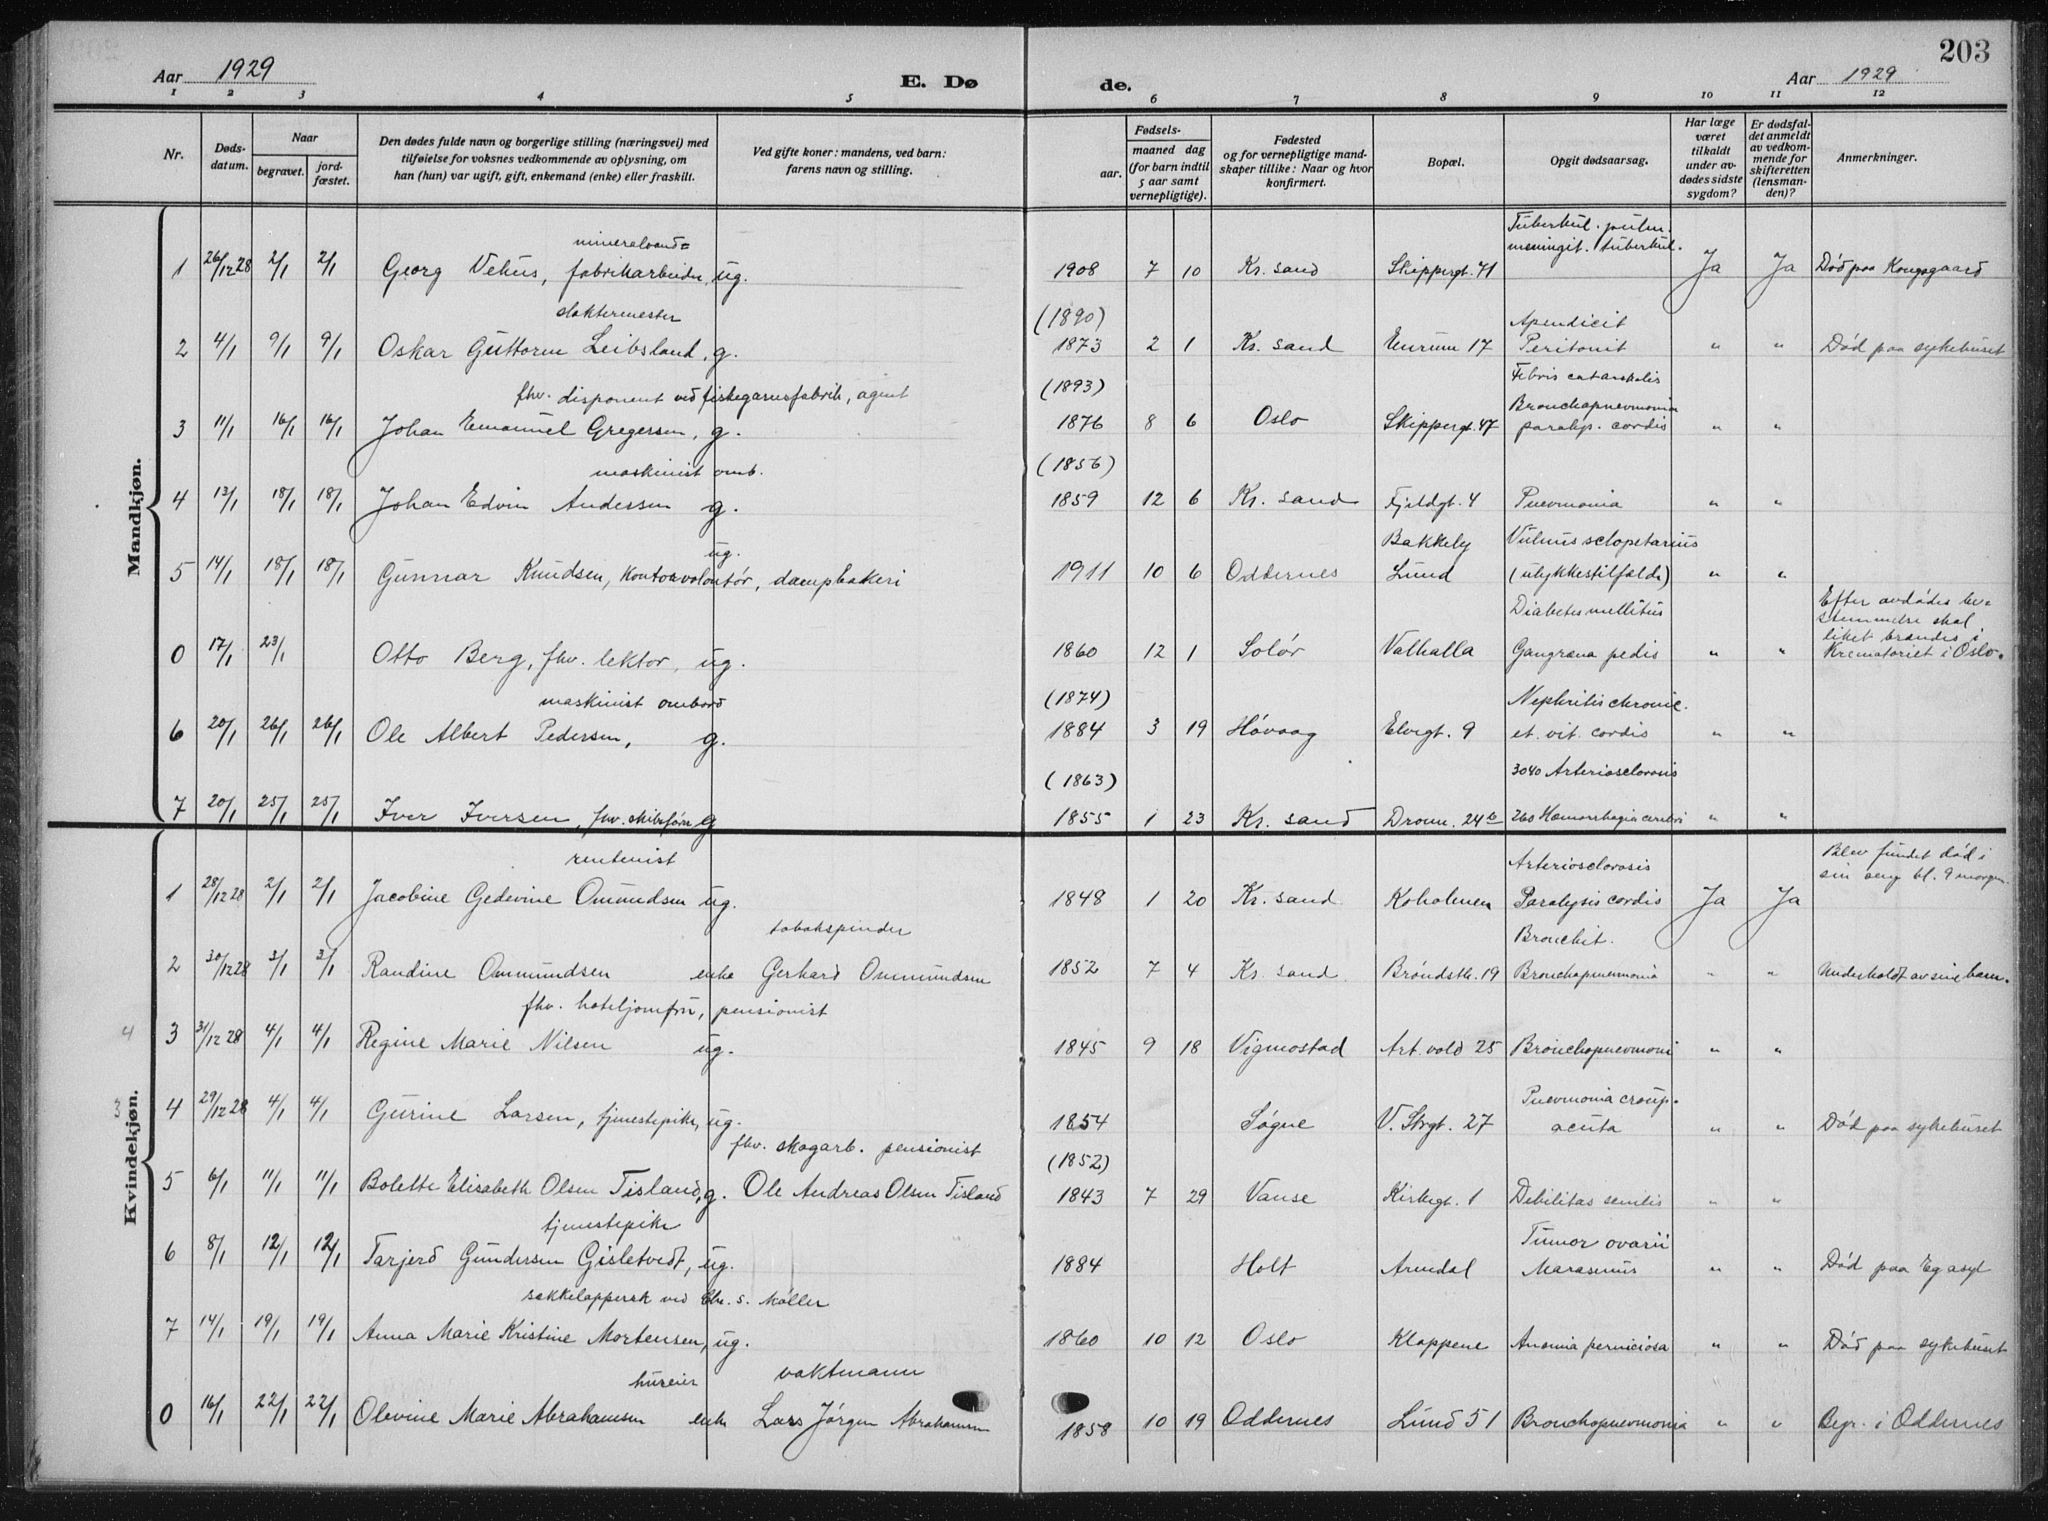 203
Aar 1929
E. Døde.
Aar 1929
1 2 3 4 5 6 7 8 9 10 11 12
Nr.
Døds-datum.
Naar
begravet.
jord-fæstet.
Den dødes fulde navn og borgerlige stilling (næringsvei) med
tilføielse for voksnes vedkommende av oplysning, om
han (hun) var ugift, gift, enkemand (enke) eller fraskilt.
Ved gifte koner: mandens, ved barn:
farens navn og stilling.
Fødsels-
aar.
maaned dag
(for barn indtil
5 aar samt
vernepligtige).
Fødested
og for vernepligtige mand-
skaper tillike: Naar og hvor
konfirmert.
Bopæl.
Opgit dødsaarsag.
Har læge
været
tilkaldt
under av-
dødes sidste
sygdom?
Er dødsfal-
det anmeldt
av vedkom-
mende for
skifteretten
(lensman-
den)?
Anmerkninger.
Mandkjøn.
mineralvand= Tuberkul. pulm. meningit. tuberkul.
1 26/12 28 2/1 2/1 Georg Vehus, fabrikarbeider, ug. 1908 7 10 Kr. sand Skippergt. 41 Ja Ja Død paa Kongsgaard
slaktermester (1890) Apendicit
2 4/1 9/1 9/1 Oskar Guttorm Leibsland, g. 1873 2 1 Kr. sand Enrum 17 Peritonit " " Død paa sykehuset
fhv. disponent ved fiskegarnsfabrik, agent (1893) Febris catarrhalis Bronchopneumonia
3 11/1 16/1 16/1 Johan Emanuel Gregersen, g. 1876 8 6 Oslo Skippergt. 47 paralys. cordis " "
maskinist omb. (1856)
4 13/1 18/1 18/1 Johan Edvin Andersen g. 1859 12 6 Kr. sand Fjeldgt. 4 Pnevmonia " "
ug. Bakkely Vulnus sclopetarius
5 14/1 18/1 18/1 Gunnar Knudsen, kontorvolontør, dampbakeri 1911 10 6 Oddernes Lund (ulykkestilfælde) " "
Diabetes mellitus Efter avdødes be=
stemmelse skal
liket brændes i
0 17/1 23/1 Otto Berg, fhv. lektor, ug. 1860 12 1 Solør Valhalla Gangræna pedis " " Krematoriet i Oslo.
maskinist ombord (1874) Nephritis chronic.
6 20/1 26/1 26/1 Ole Albert Pedersen, g. 1884 3 19 Høvaag Elvegt. 9 et. vit. cordis " "
(1863) 3040 Arteriosclorosis
7 20/1 25/1 25/1 Iver Iversen, fhv. skibsfører g 1855 1 23 Kr. sand Dronn. 24 b 260 Hæmorrhagia cerebri " "
Kvindekjøn.
rentenist Arteriosclorosis Blev fundet død i
sin seng kl. 9 morgen.
1 28/12 28 2/1 2/1 Jacobine Gedevine Omundsen ug. 1848 1 20 Kr. sand Koholmen Paralysis cordis Ja Ja
tobakspinder Bronchit.
2 30/12 28 3/1 3/1 Randine Ommundsen enke Gerhard Ommundsen 1852 7 4 Kr. sand Brøndstk. 19 Bronchopneumonia " " Underholdt av sine barn.
fhv. hoteljomfru, pensionist
4 3 31/12 28 4/1 4/1 Regine Marie Nilsen ug. 1845 9 18 Vigmostad Art. vold 25 Bronchopnevmoni " "
Pnevmonia croup.
3 4 29/12 28 4/1 4/1 Gurine Larsen, tjenestepike, ug. 1854 Søgne V. Strgt. 27 acuta " " Død paa sykehuset
fhv. skogarb. pensionist (1852)
5 6/1 11/1 11/1 Bolette Elisabeth Olsen Tisland, g. Ole Andreas Olsen Tisland 1843 7 29 Vanse Kirkegt. 1 Debilitas senilis " "
tjenestepike Tumor ovarii
6 8/1 12/1 12/1 Tarjerd Gundersen Gisletvedt, ug. 1884 Holt Arendal Marasmus " " Død paa Eg asyl
sækkelapperske ved Chr. S. Møller
7 14/1 19/1 19/1 Anna Marie Kristine Mortensen, ug. 1860 10 12 Oslo Kloppene Anæmia perniciosa " " Død paa sykehuset
huseier vaktmann
0 16/1 22/1 22/1 Olevine Marie Abrahamsen enke Lars Jørgen Abrahamsen 1858 10 19 Oddernes Lund 51 Bronchopneumonia " " Begr. i Oddernes